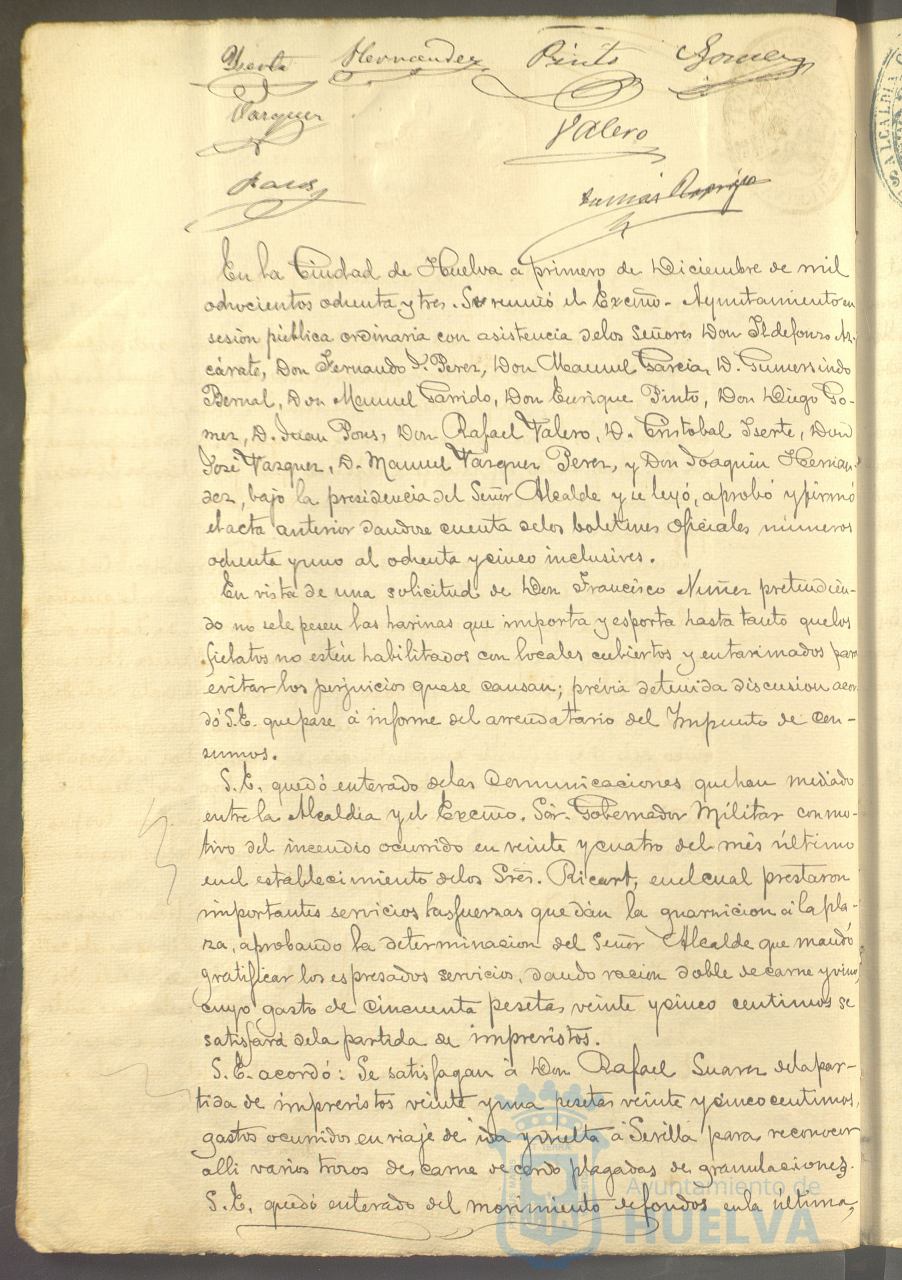 Yserte Hernandez Pinto Gomez
Vazquez Valero
Pons
En la Ciudad de Huelva a primero de Diciembre de mil
ochocientos ochenta y tres. Se reunió el Excmo. Ayuntamiento en
sesión pública ordinaria con asistencia delos señores Don Ildefonso Az-
cárate, Don Fernando Perez, Don Manuel Garcia, D. Gumersindo
Bernal, Don Manuel Garrido, Don Enrique Pinto, Don Diego Go-
mez, D. Juan Pons, Don Rafael Valero, D. Cristobal Iserte, Don
José Vazquez, D. Manuel Vazquez Perez, y Don Joaquin Hernan-
dez, bajo la presidencia del Señor Alcalde y se leyó, aprobó y firmó
el acta anterior dandose cuenta delos boletines oficiales números
ochenta y uno al ochenta y cinco inclusives.
En vista de una solicitud de Don Francisco Nuñez pretendien-
do no sele pesen las harinas que importa y esporta hasta tanto quelos
fielatos no estén habilitados con locales cubiertos y entarimados para
evitar los perjuicios quese causan; prévia detenida discusion acor-
dó S.E. que pase á informe del arrendatario del Impuesto de Con-
sumos.
S.E. quedó enterado delas Comunicaciones quehan mediado
entre la Alcaldia y el Excmo. Sór. Gobernador Militar con mo-
tivo del incendio ocurrido en veinte y cuatro del més último
en el establecimiento delos Sres. Ricart, enel cual prestaron
importantes servicios las fuerzas que dán la guarnicion á la pla-
za, aprobando la determinacion del Señor Alcalde que mandó
gratificar los espresados servicios, dando racion doble de carne y vino,
cuyo gasto de cincuenta pesetas veinte y cinco centimos se
satisfará dela partida de imprevistos.
S.E. acordó: Se satisfagan á Don Rafael Suarez dela par-
tida de imprevistos veinte y una pesetas veinte y cinco centimos,
gastos ocurridos en viaje de ida y vuelta á Sevilla para reconocer
alli varios trozos de carne de cerdo plagadas de granulaciones.
S.E. quedó enterado del movimiento defondos enla última
Ayuntamiento de
HUELVA